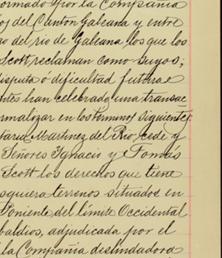 ormado por la Compañía
os del Cantón Galeana y entre
go del rio de Galeana, los que los
Scott, reclaman como suyos;
isputa ó dificultad futura
ntes han celebrado una transac
rmalizar en los términos siguientes
tario Martinez del Rio, cede y
Señores Ignacio y Tomás
Scott los derechos que tiene
squiera terrenos situados en
Poniente del límite Occidental
baldíos, adjudicada por el
la Compañía deslindadora